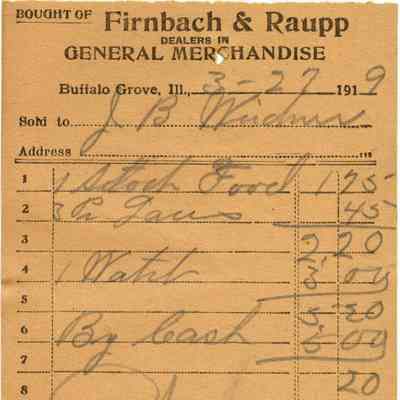 BOUGHT OF Firnbach & Raupp
DEALERS IN
GENERAL MERCHANDISE
Buffalo Grove, Ill., 3-27 1919
Sold to J B
Address
1 1 Stock Food 1 75
2 3 45
3 2,20
4 1 Watch 3 00
5 5 20
6 By Cash 5 00
7
8 20